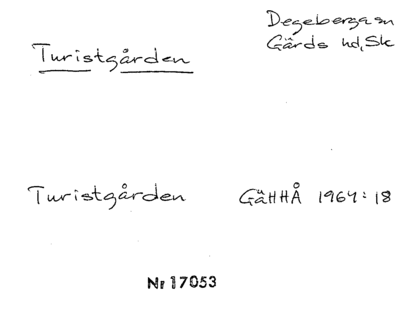 Degeberga sn
Gärds hd, Sk
Turistgården
Turistgården GäHHÅ 1964:18
Nr 17053